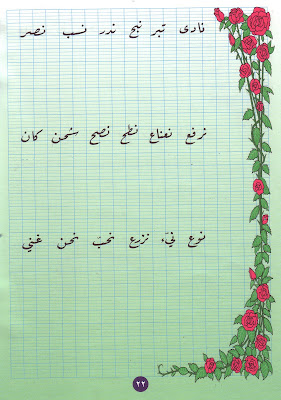 نادى نبر نبح ندر نسب نصر
نرفع نعناع نطح نصح شحن كان
نوع نيء نزرع نحبّ نحن غني
٢٢